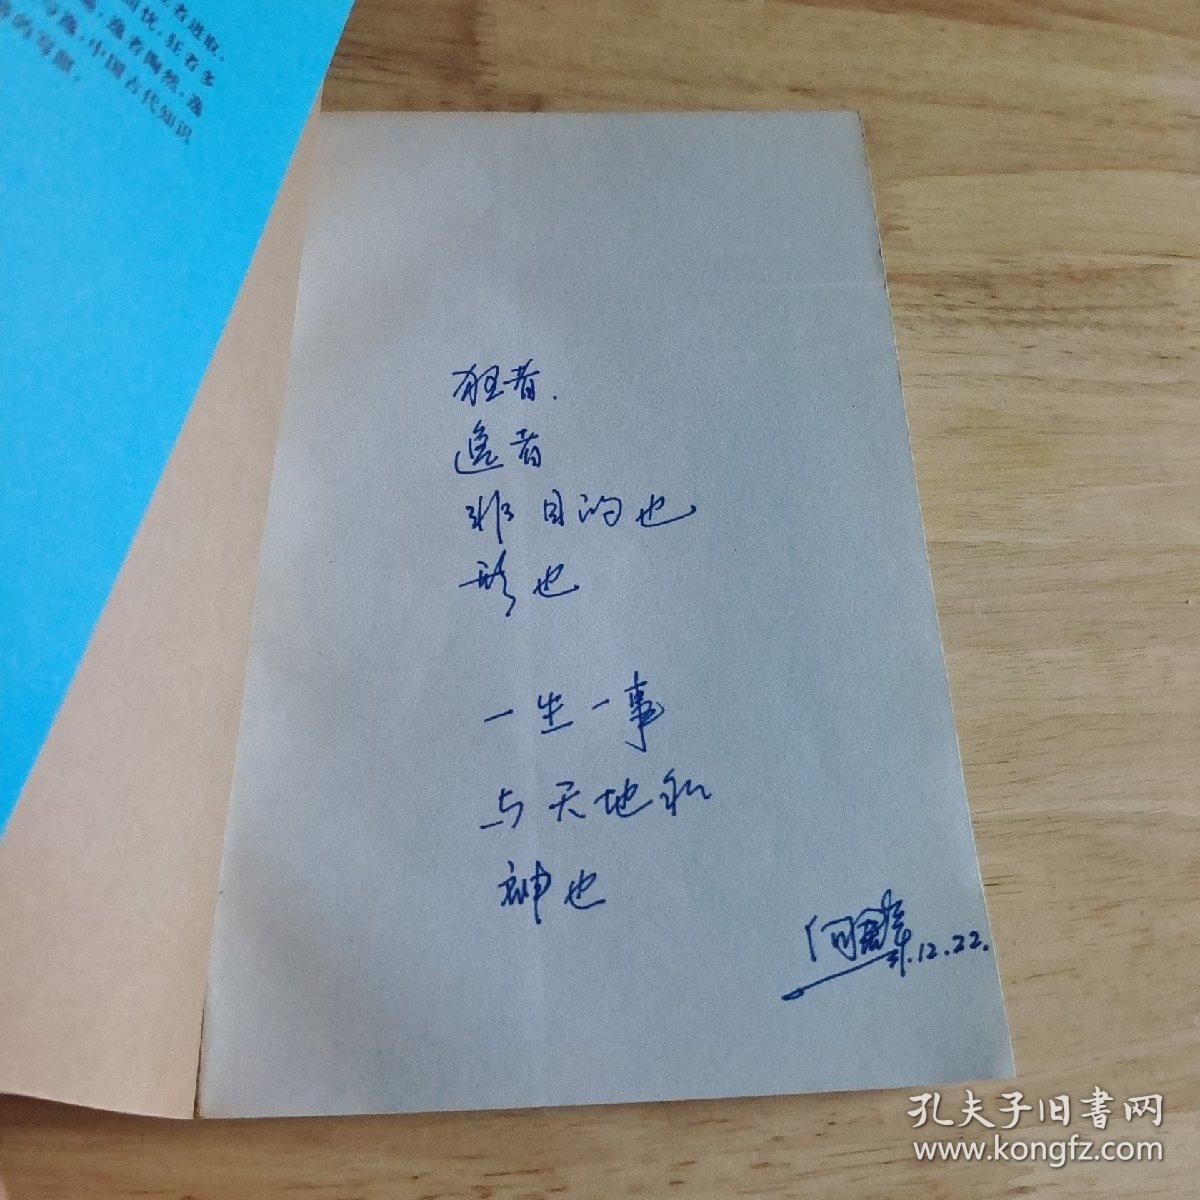 者进取,
忧,狂者多
逸者陶然,逸
逸,中国古代知识
的写照。
狂者.
逸者
非目的也
形也
一生一事
与天地和
神也
何
91.12.22.
孔夫子旧書网
www.kongfz.com